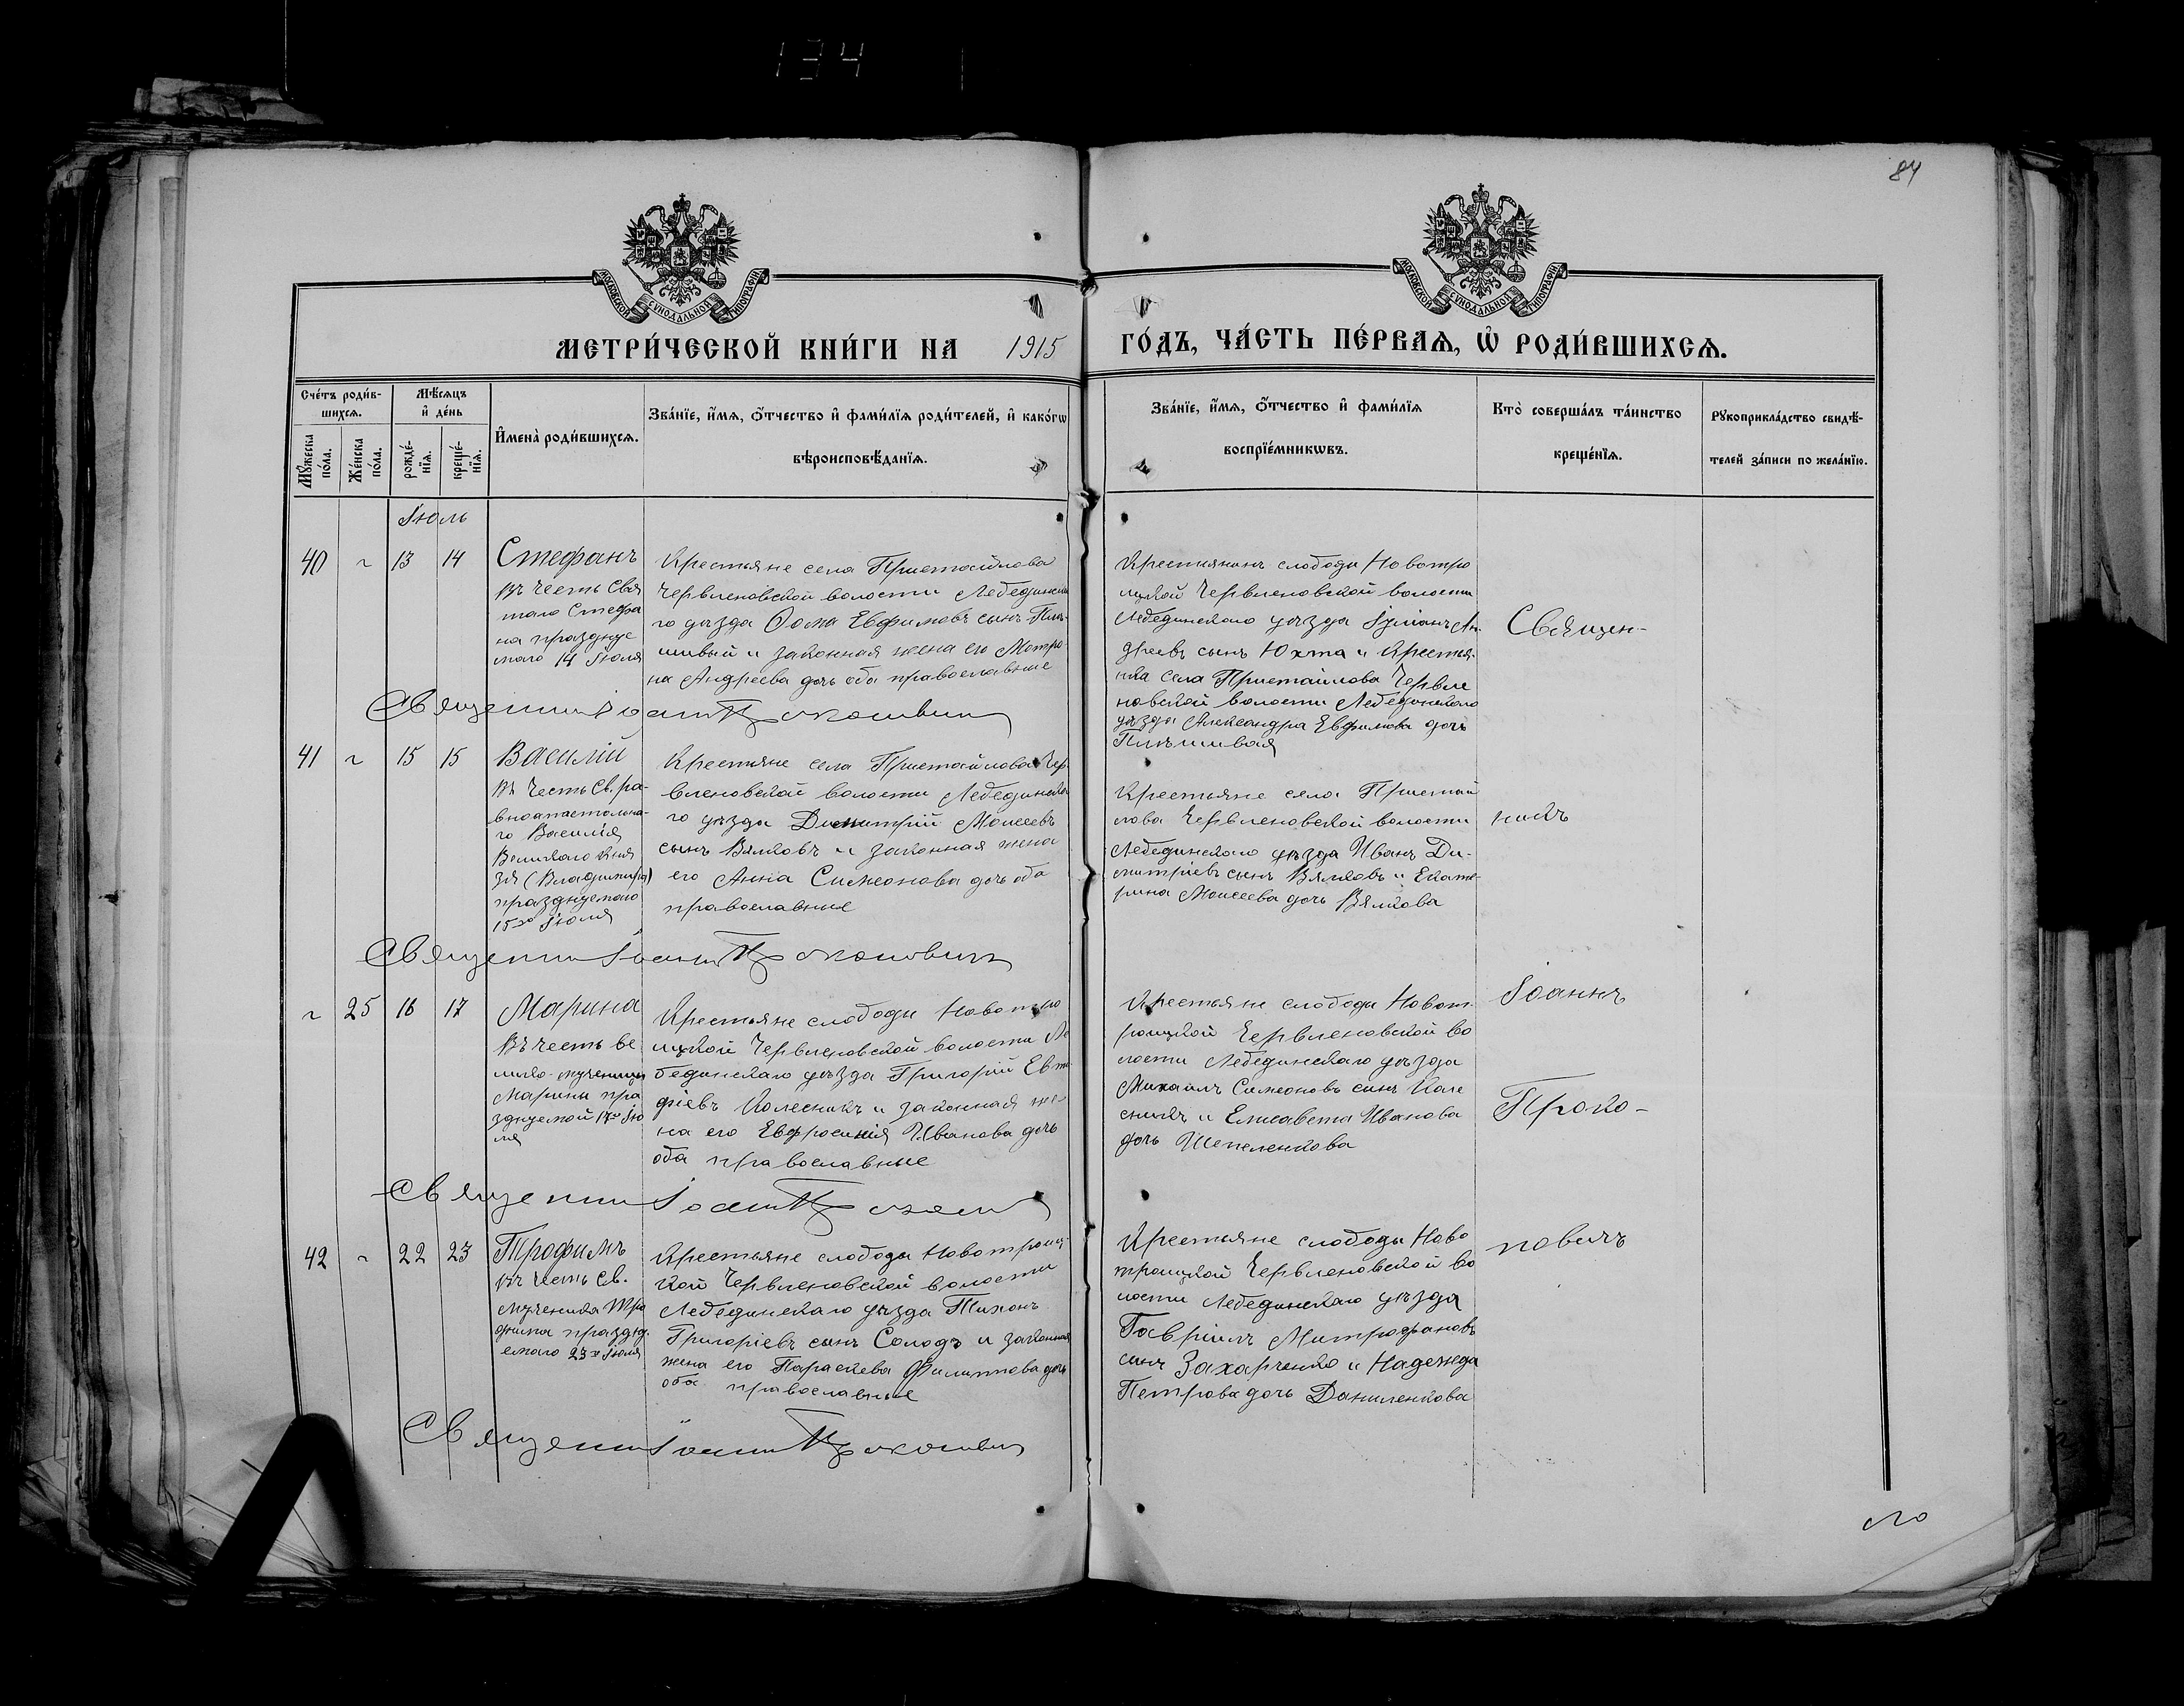 134
84
МОСКОВСКОЙ СУНОДАЛЬНОЙ ТИПОГРАФІИ
МОСКОВСКОЙ СУНОДАЛЬНОЙ ТИПОГРАФІИ
МЕТРИ́ЧЕСКОЙ КНИ́ГИ НА 1915 ГО́ДЪ, ЧА́СТЬ ПЕ́РВАѦ, Ѡ҆ РОДИ́ВШИХСѦ.
Сче́тъ роди́в-
шихсѧ.
Мꙋ́жеска
по́ла.
Же́нска
по́ла.
Мѣ́сѧцъ
и҆ де́нь
рожде́-
нїѧ.
креще́-
нїѧ.
И҆мена̀ роди́вшихсѧ.
Зва́нїе, и҆́мѧ, ѻ҆́тчество и҆ фами́лїѧ роди́телей, и҆ како́гѡ
вѣроисповѣ́данїѧ.
Зва́нїе, и҆́мѧ, ѻ҆́тчество и҆ фами́лїѧ
воспрїе́мникѡвъ.
Кто̀ соверша́лъ та́инство
креще́нїѧ.
Рꙋкоприкла́дство свидѣ́-
телей за́писи по жела́нїю.
Іюль
40 ~ 13 14
Стефанъ
въ честь Свя
таго Стефа
на праздуе
маго 14 Іюля
Крестьяне села Пристайлова
Червленовской волости Лебединска
го уѣзда Ѳома Евфимовъ сынъ Плѣ-
шивый и законная жена его Матро-
на Андреева дочь оба православные
Крестьянинъ слободы Новотро
ицкой Червленовской волости
Лебединскаго уѣзда Іуліанъ Ан-
дреевъ сынъ Юхта и крестья-
нка села Пристайлова Червле
новской волости Лебединскаго
уѣзда Александра Евфимова дочь
Плѣшивая
Священ-
Священник Іоанн Прокопович
41 ~ 15 15
Василій
въ честь Св. ра-
вноапостольна-
го Василія
Великаго Кня
зя (Владимира)
празднуемаго
15го Іюля
Крестьяне села Пристайлова Чер
вленовской волости Лебединска
го уѣзда Димитрій Моисеевъ
сынъ Вялковъ и законная жена
его Анна Симеонова дочь оба
православные
Крестьяне села Пристай
лова Червленовской волости
Лебединскаго уѣзда Иванъ Ди-
митріевъ сынъ Вялковъ и Екате-
рина Моисеева дочь Вялкова
никъ
Священник Іоанн Прокопович
~ 25 16 17
Марина
Въ честь ве
лико-мученицы
Марины пра
зднуемой 17го Ію
ля
Крестьяне слободы Новотро
ицкой Червленовской волости Ле
бединскаго уѣзда Григорій Евти
фіевъ Колесникъ и законная же-
на его Евфросинія Иванова дочь
оба православные
Крестьяне слободы Новот-
роицкой Червленовской во
лости Лебединскаго уѣзда
Михаилъ Симеоновъ сынъ Коле
сникъ и Елисавета Иванова
дочь Шепеленкова
Іоаннъ
Проко-
Священник Іоанн Прокопович
42 ~ 22 23
Трофимъ
въ честь Св.
мученика Тро
фима праздну-
емаго 23го Іюля
Крестьяне слободы Новотроиц-
кой Червленовской волости
Лебединскаго уѣзда Тихонъ
Григоріевъ сынъ Солодъ и законная
жена его Параскева Филиппова дочь
оба православные
Крестьяне слободы Ново
троицкой Червленовской во
лости Лебединскаго уѣзда
Гавріилъ Митрофановъ
сынъ Захарченко и Надежда
Петрова дочь Даниленкова
повичъ
Священник Іоанн Прокопович